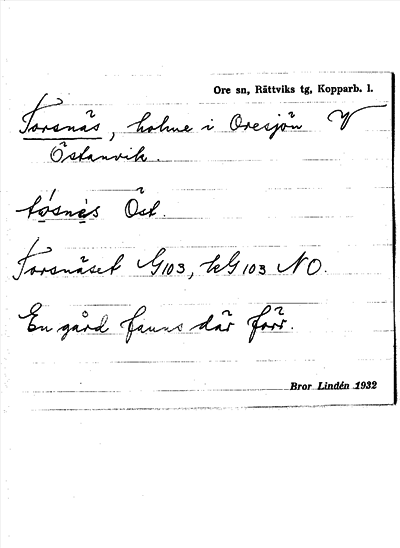 Ore sn, Rättviks tg, Kopparb. l.
Torsnäs, holme i Oresjön V
Östanvik.
tósnès Öst.
Torsnäset G103, hG103 NO.
En gård fanns där förr.
Bror Lindén 1932